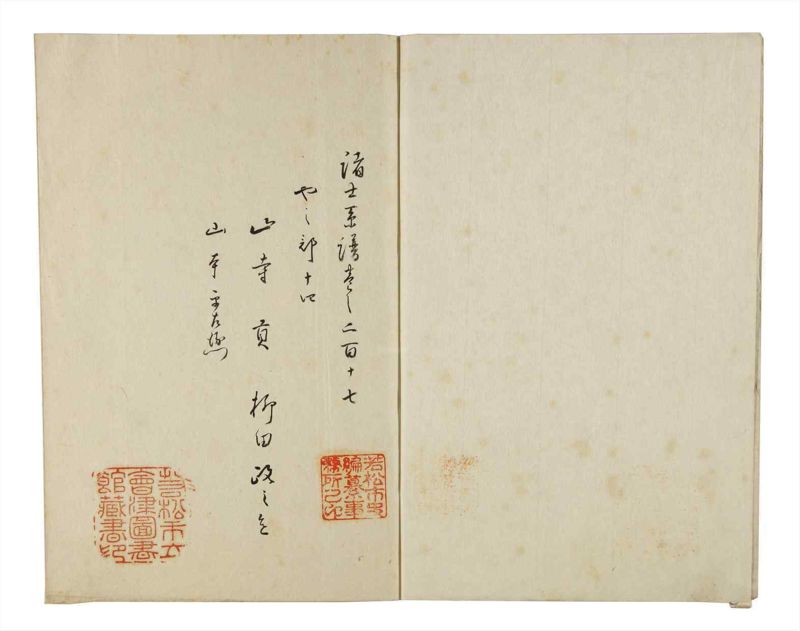 諸士系譜巻之二百十七
や之部十四
山寺貢 柳田政之
山本
若松市史編纂事務所之印
若松市立會津圖書館藏書印